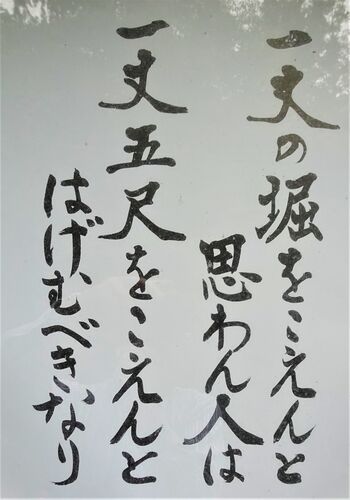 一丈の堀をこえんと
思わん人は
一丈五尺をこえんと
はげむべきなり